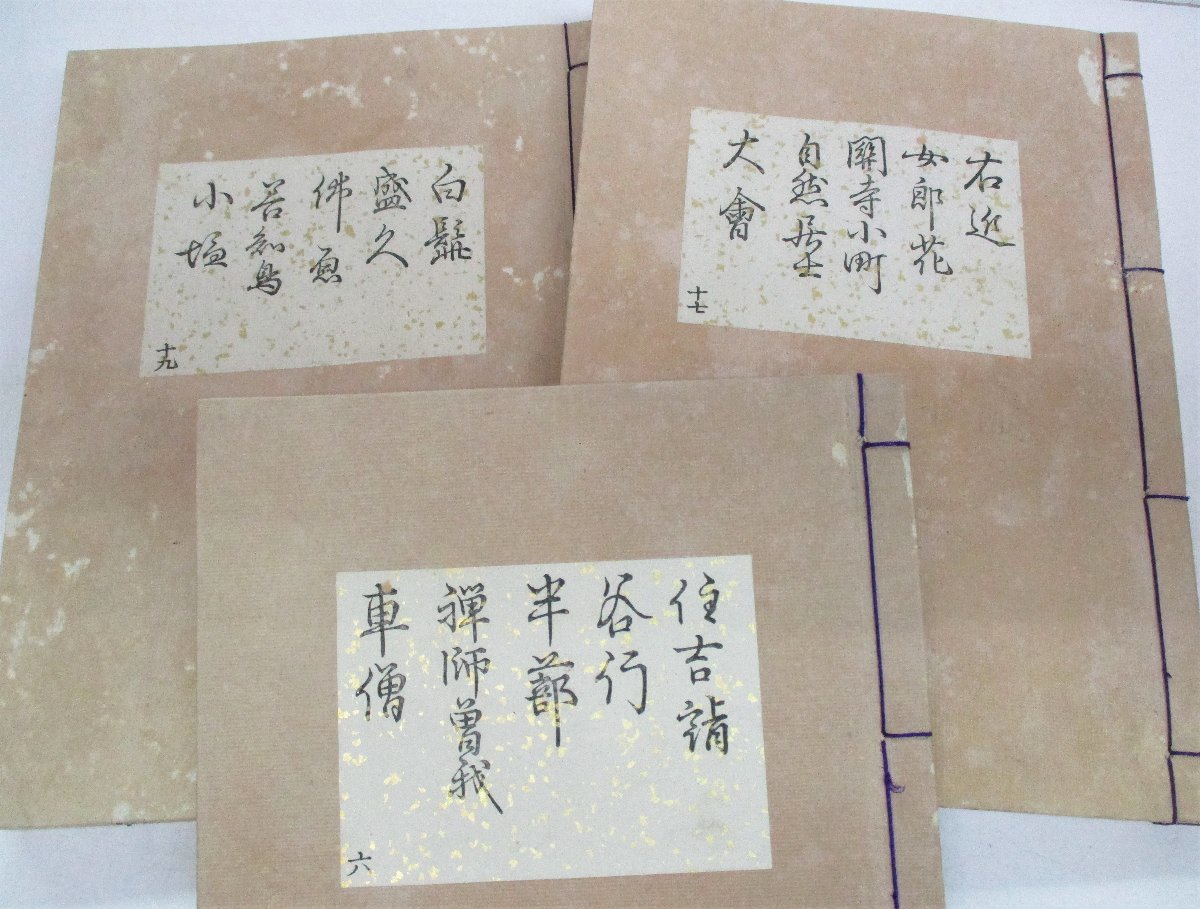 白髭
盛久
佛原
善知鳥
小塩
十九
右近
女郎花
關寺小町
自然居士
大會
十七
住吉詣
谷行
半蔀
禅師曽我
車僧
六